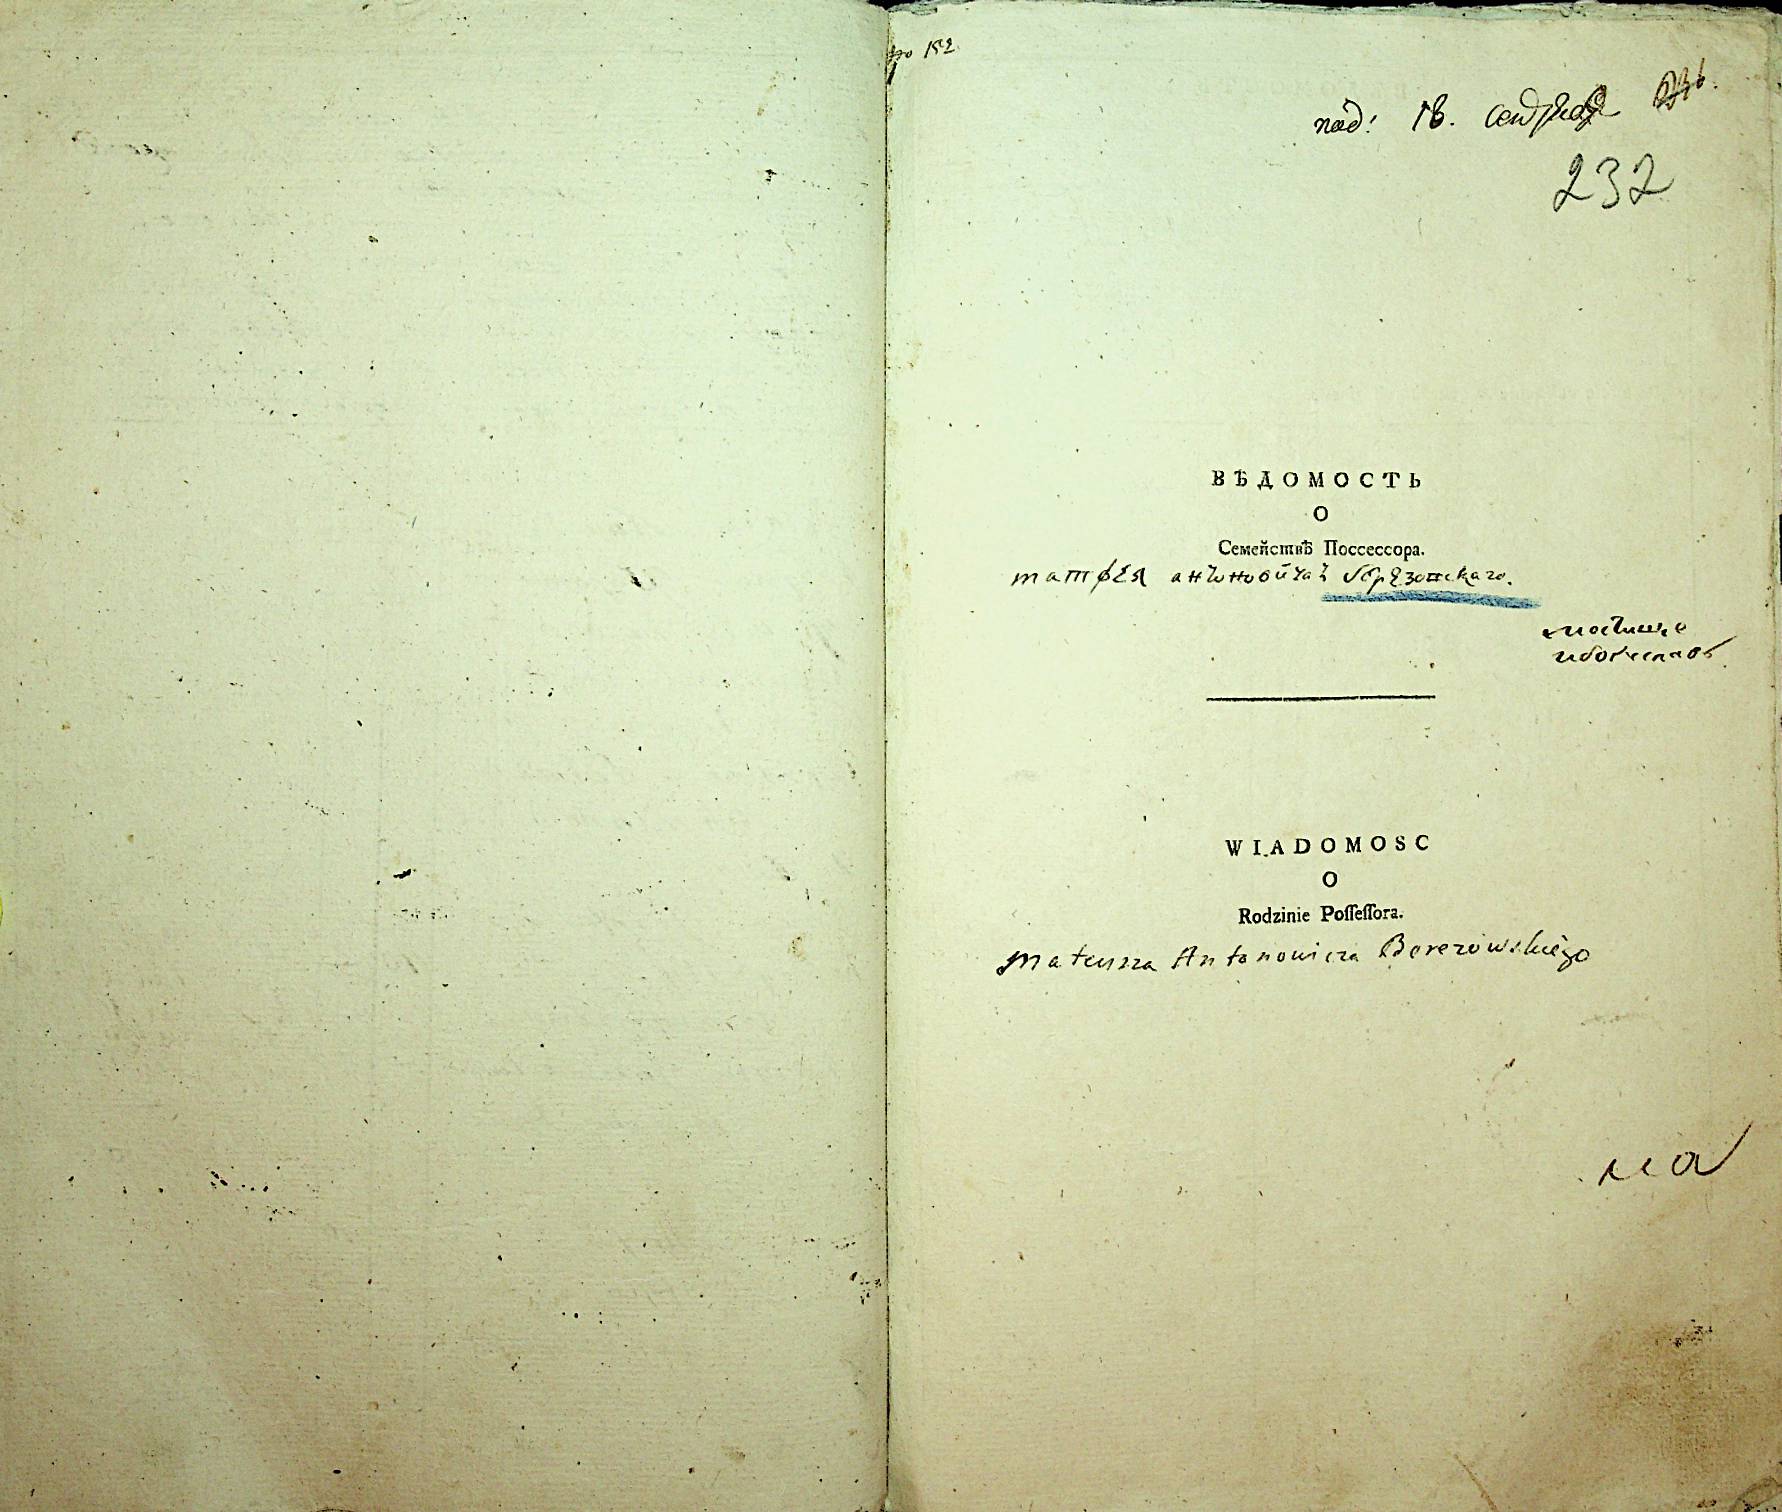 no 152
под: 18. сентября
232
ВѢДОМОСТЬ
О
Семействѣ Поссессора.
матфея антоновича березовскаго.
WIADOMOSC
O
Rodzinie Poſſeſſora.
Mateusza Antonowicza Berezowskiego